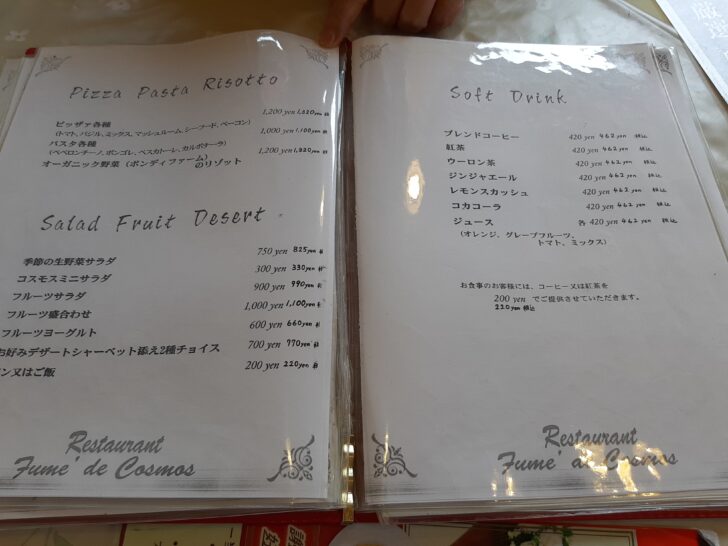 Pizza Pasta Risotto
ピッザァ各種 1,200 yen 1,320 yen
(トマト、バジル、ミックス、マッシュルーム、シーフード、ベーコン)
パスタ各種 1,000 yen 1,100 yen
(ペペロンチーノ、ボンゴレ、ペスカトーレ、カルボナーラ)
オーガニック野菜(ボンディファーム)のリゾット 1,200 yen 1,320 yen
Salad Fruit Desert
季節の生野菜サラダ 750 yen 825yen
コスモスミニサラダ 300 yen 330yen
フルーツサラダ 900 yen 990yen
フルーツ盛合わせ 1,000 yen 1,100yen
フルーツヨーグルト 600 yen 660yen
お好みデザートシャーベット添え2種チョイス 700 yen 770yen
ン又はご飯 200 yen 220yen
Restaurant
Fume' de Cosmos
Soft Drink
ブレンドコーヒー 420 yen 462yen 税込
紅茶 420 yen 462yen 税込
ウーロン茶 420 yen 462yen 税込
ジンジャエール 420 yen 462yen 税込
レモンスカッシュ 420 yen 462yen 税込
コカコーラ 420 yen 462yen 税込
ジュース 各 420 yen 462yen 税込
(オレンジ、グレープフルーツ、
トマト、ミックス)
お食事のお客様には、コーヒー又は紅茶を
200 yen でご提供させていただきます。
220yen 税込
Restaurant
Fume' de Cosmos